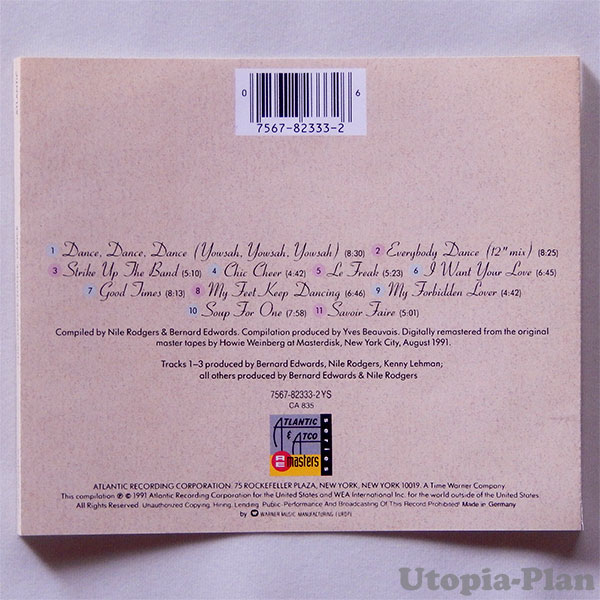 0 6
7567-82333-2
1 Dance, Dance, Dance (Yowsah, Yowsah, Yowsah) (8:30) 2 Everybody Dance (12" mix) (8:25)
3 Strike Up The Band (5:10) 4 Chic Cheer (4:42) 5 Le Freak (5:23) 6 I Want Your Love (6:45)
7 Good Times (8:13) 8 My Feet Keep Dancing (6:46) 9 My Forbidden Lover (4:42)
10 Soup For One (7:58) 11 Savoir Faire (5:01)
Compiled by Nile Rodgers & Bernard Edwards. Compilation produced by Yves Beauvais. Digitally remastered from the original
master tapes by Howie Weinberg at Masterdisk, New York City, August 1991.
Tracks 1–3 produced by Bernard Edwards, Nile Rodgers, Kenny Lehman;
all others produced by Bernard Edwards & Nile Rodgers
7567-82333-2 YS
CA 835
ATLANTIC
& ATCO
masters
series
ATLANTIC RECORDING CORPORATION. 75 ROCKEFELLER PLAZA, NEW YORK, NEW YORK 10019. A Time Warner Company
This compilation ℗ © 1991 Atlantic Recording Corporation for the United States and WEA International Inc. for the world outside of the United States.
All Rights Reserved. Unauthorized Copying, Hiring, Lending, Public Performance And Broadcasting Of This Record Prohibited! Made in Germany
by WARNER MUSIC MANUFACTURING EUROPE
Utopia-Plan